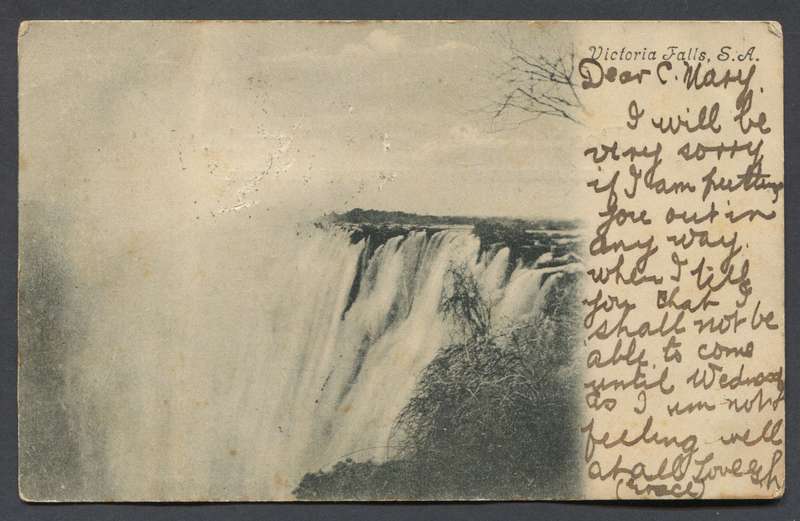 Victoria Falls, S.A.
Dear C. Mary,
I will be
very sorry
if I am putting
you out in
any way.
when I tell
you that I
shall not be
able to come
until Wednesday
as I am not
feeling well
at all Love
(Grace)